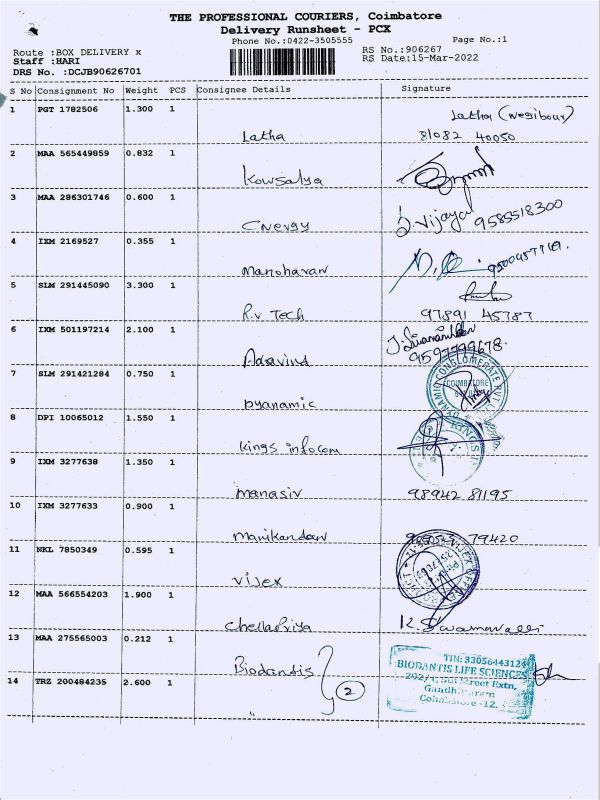 THE PROFESSIONAL COURIERS, Coimbatore
Delivery Runsheet - PCX
Phone No.:0422-3505555 Page No.:1
Route :BOX DELIVERY x RS No.:906267
Staff :HARI RS Date:15-Mar-2022
DRS No. :DCJB90626701
S No Consignment No Weight PCS Consignee Details Signature
1 PGT 1782506 1.300 1 Latha (Negibour)
Latha 81082 40050
2 MAA 565449859 0.832 1
Kowsalya
3 MAA 286301746 0.600 1
Cnergy J. Vijaya 9585518300
4 IXM 2169527 0.355 1
Manoharan
5 SLM 291445090 3.300 1
R.v Tech 97891 45787
6 IXM 501197214 2.100 1
Aravind 9597799678.
7 SLM 291421284 0.750 1 COIMBATORE
Dyanamic
8 DPI 10065012 1.550 1
Kings infocom
9 IXM 3277638 1.350 1
Manasiv 98942 81195
10 IXM 3277633 0.900 1
Manikandan 79420
11 NKL 7850349 0.595 1
Vijex
12 MAA 566554203 1.900 1
Chellapriya
13 MAA 275565003 0.212 1 TIN: 33056443124
Biodantis BIODANTIS LIFE SCIENCES
14 TRZ 200484235 2.600 1 2
Street Extn,
Coimbatore -12.